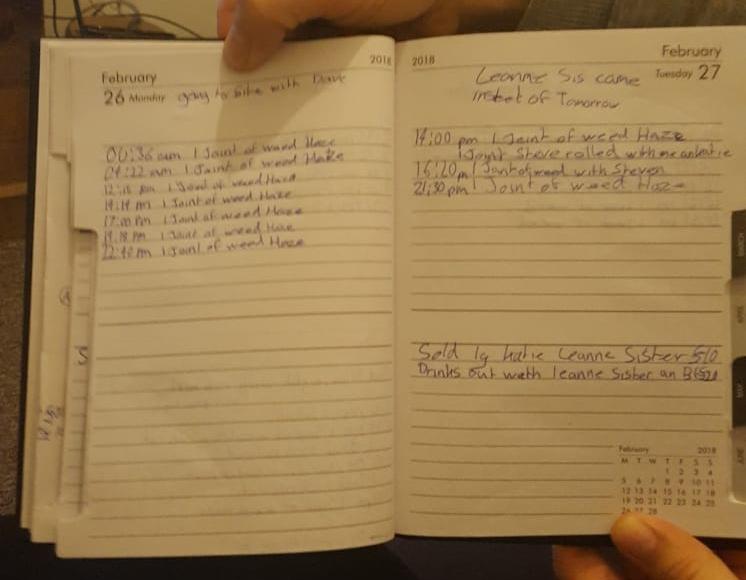 2018
February
26 Monday going to bike with Dave
00:36 am 1 Joint of weed Haze
04:22 am 1 Joint of weed Haze
12:15 pm 1 Joint of weed Haze
14:14 pm 1 Joint of weed Haze
17:00 Pm 1 Joint of weed Haze
19:18 Pm 1 Joint of weed Haze
22:40 pm 1 Joint of weed Haze
2018
February
Tuesday 27
Leanne Sis came
insteet of Tomorrow
14:00 pm 1 Joint of weed Haze
1 Joint Steve rolled with me an katie
16:20 pm 1 Joint of weed with Steven
21:30 pm 1 Joint of weed Haze
Sold 1g katie Leanne Sister £10
Drinks out with leanne Sister an B
February 2018
M T W T F S S
1 2 3 4
5 6 7 8 9 10 11
12 13 14 15 16 17 18
19 20 21 22 23 24 25
26 27 28